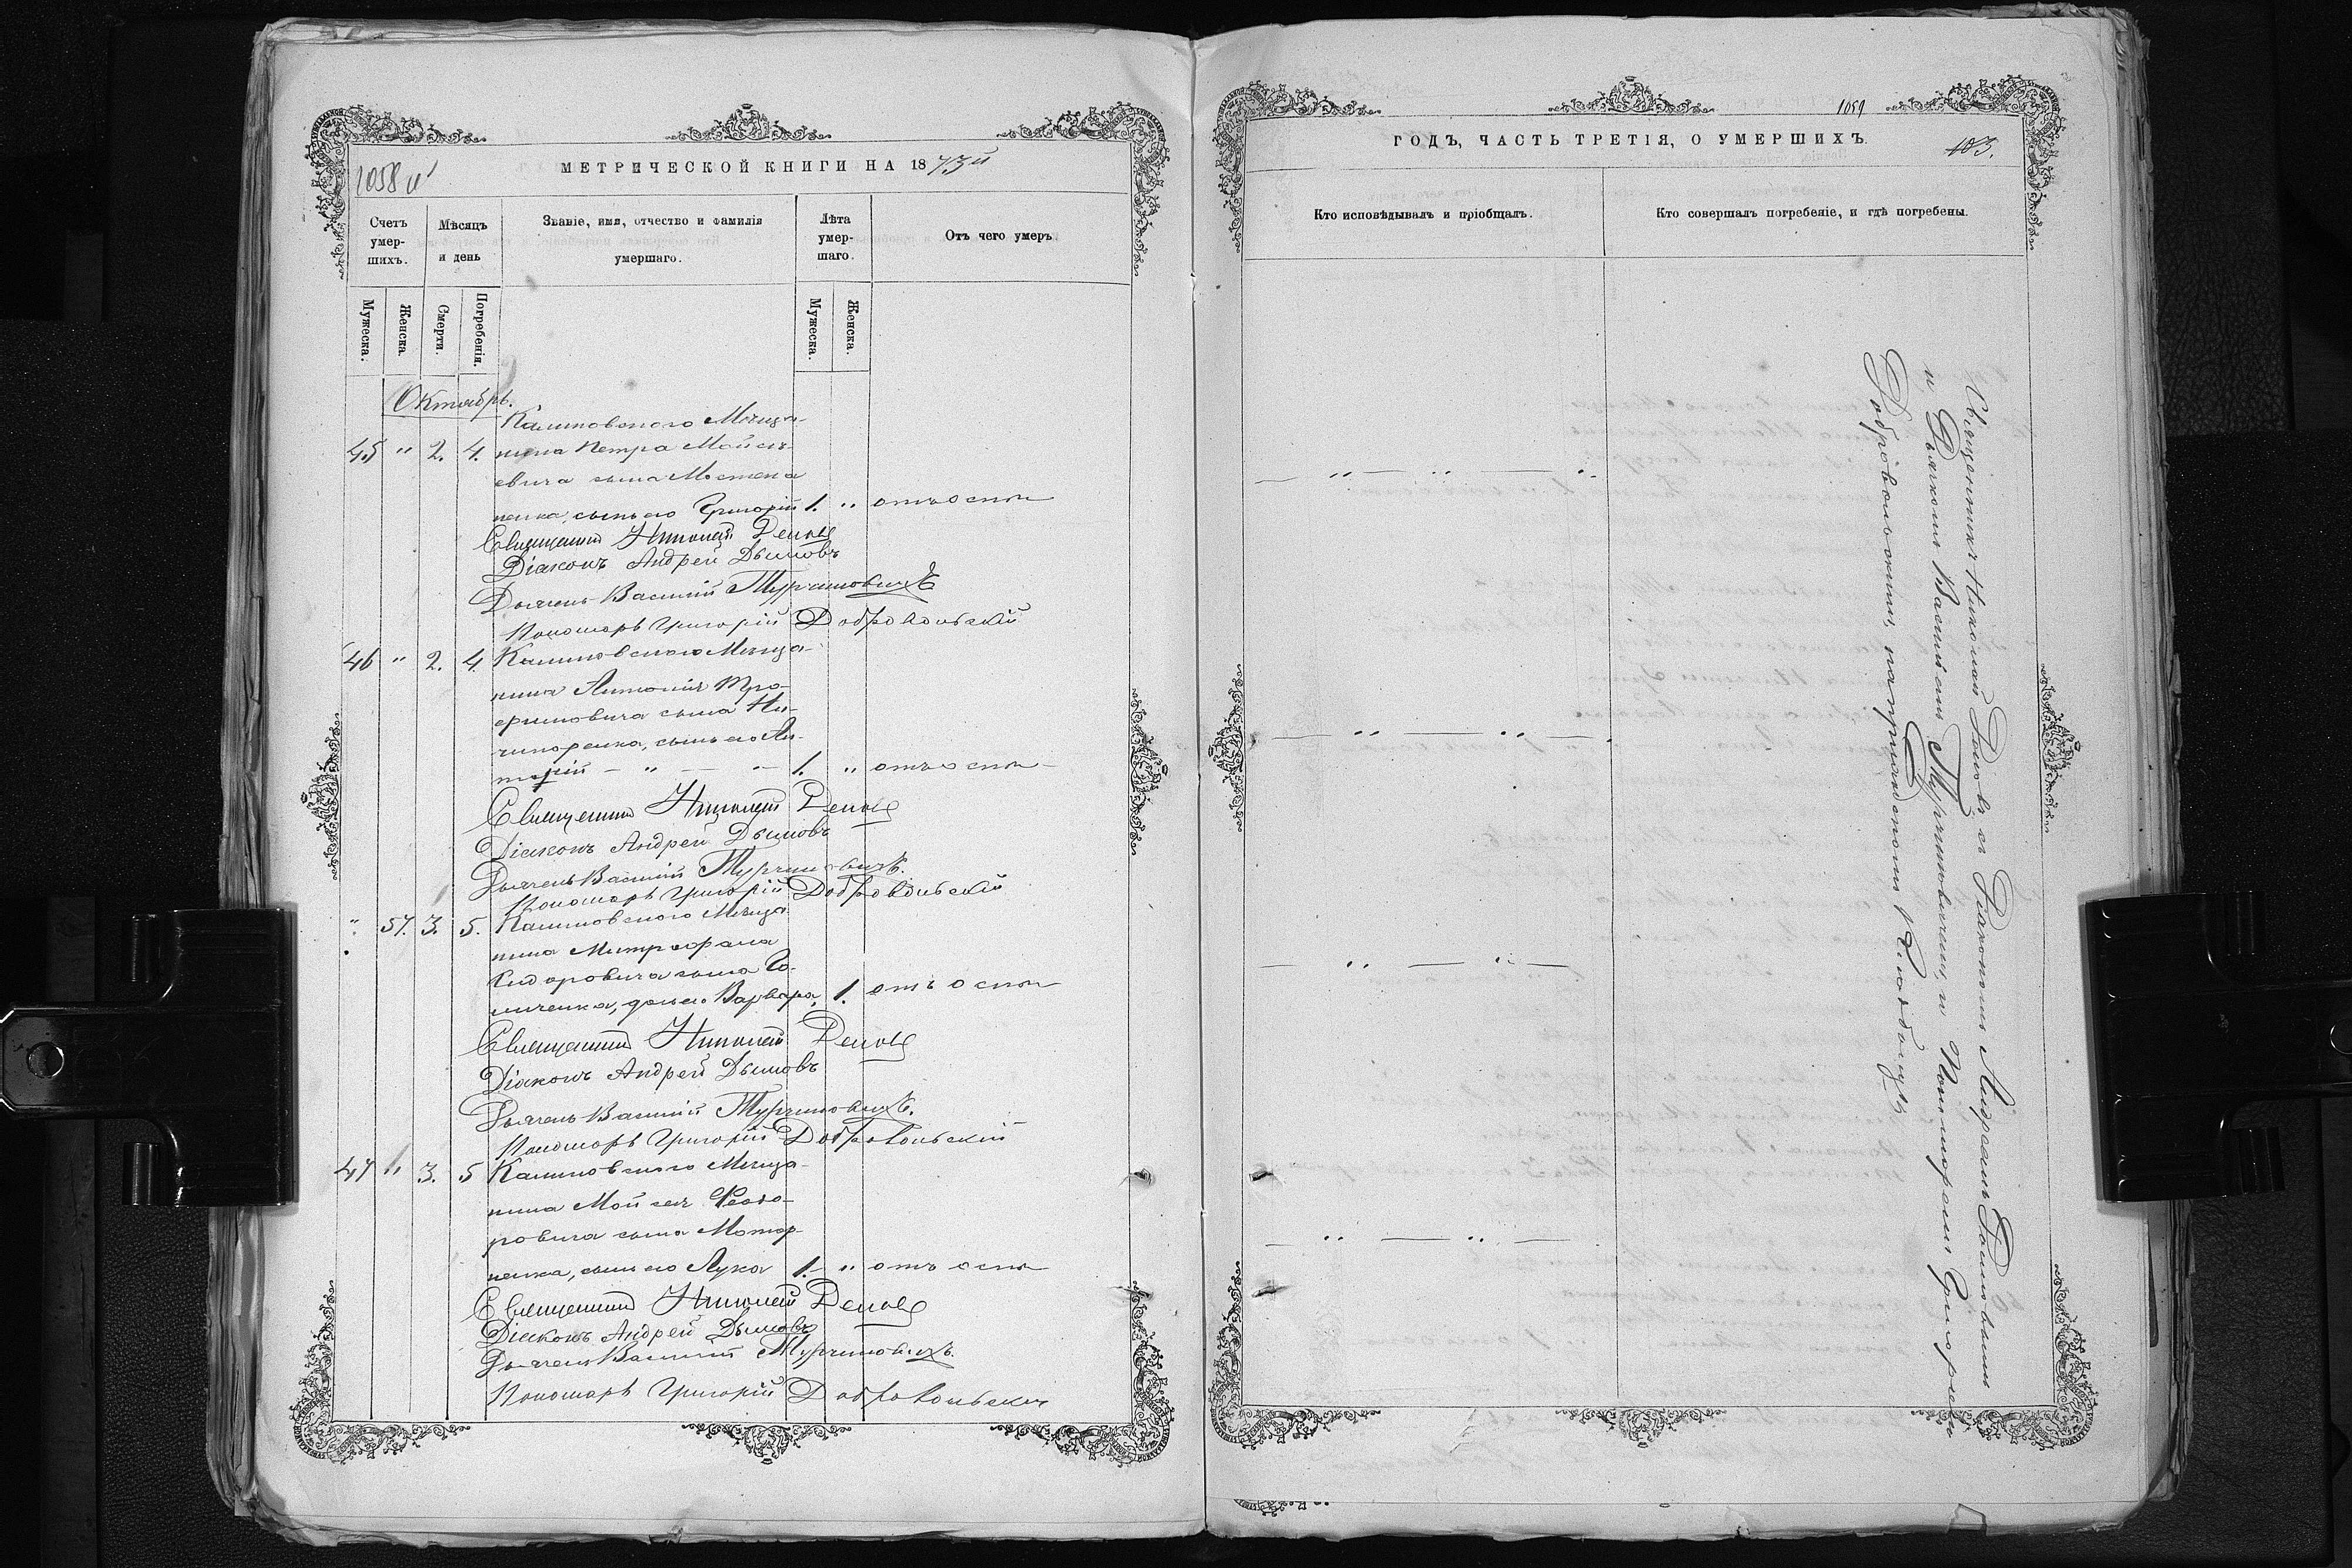 1058 и
МЕТРИЧЕСКОЙ КНИГИ НА 1873й
Счетъ умер-шихъ.
Мѣсяцъ и день
Званіе, имя, отчество и фамилія умершаго.
Лѣта умер-шаго.
Отъ чего умеръ
Мужеска.
Женска.
Смерти.
Погребенія.
Мужеска.
Женска.
Октябрь.
Калиновскаго Мѣща-
45 " 2. 4. нина Петра Мойсѣ-
евича сына
сынъ его Григорій 1. " отъ оспы
Священникъ Николай
Діаконъ Андрей
Дьячекъ Василій Турчиновичъ
Пономарь Григорій Добровольскій
46 " 2. 4. Калиновскаго Мѣща-
нина Антонія Тро-
фимовича сына Ни-
чипоренка, сынъ его
" — " — 1. " отъ оспы
Священникъ Николай
Діаконъ Андрей
Дьячекъ Василій Турчиновичъ.
Пономарь Григорій Добровольскій
" 57. 3. 5. Калиновскаго Мѣща-
нина Митрофана
Сидоровича сына
дочь его Варвара, 1. отъ оспы
Священникъ Николай
Діаконъ Андрей
Дьячекъ Василій Турчиновичъ.
Пономарь Григорій Добровольскій
47 " 3. 5 Калиновскаго Мѣща-
нина Мойсея Ѳеодо-
ровича сына
сынъ его Лука 1. " отъ оспы
Священникъ Николай
Діаконъ Андрей
Дьячекъ Василій Турчиновичъ.
Пономарь Григорій Добровольскій
1059
ГОДЪ, ЧАСТЬ ТРЕТІЯ, О УМЕРШИХЪ.
103.
Кто исповѣдывалъ и пріобщалъ.
Кто совершалъ погребеніе, и гдѣ погребены.
— " — " — "
— " — " — .
— " — " —
— " — " —
Священникъ Николай съ Діакономъ Андреемъ
и Дьякомъ Василіемъ Турчиновичемъ, и Пономаремъ Григоріемъ
Добровольскимъ, на приходскомъ кладбищѣ